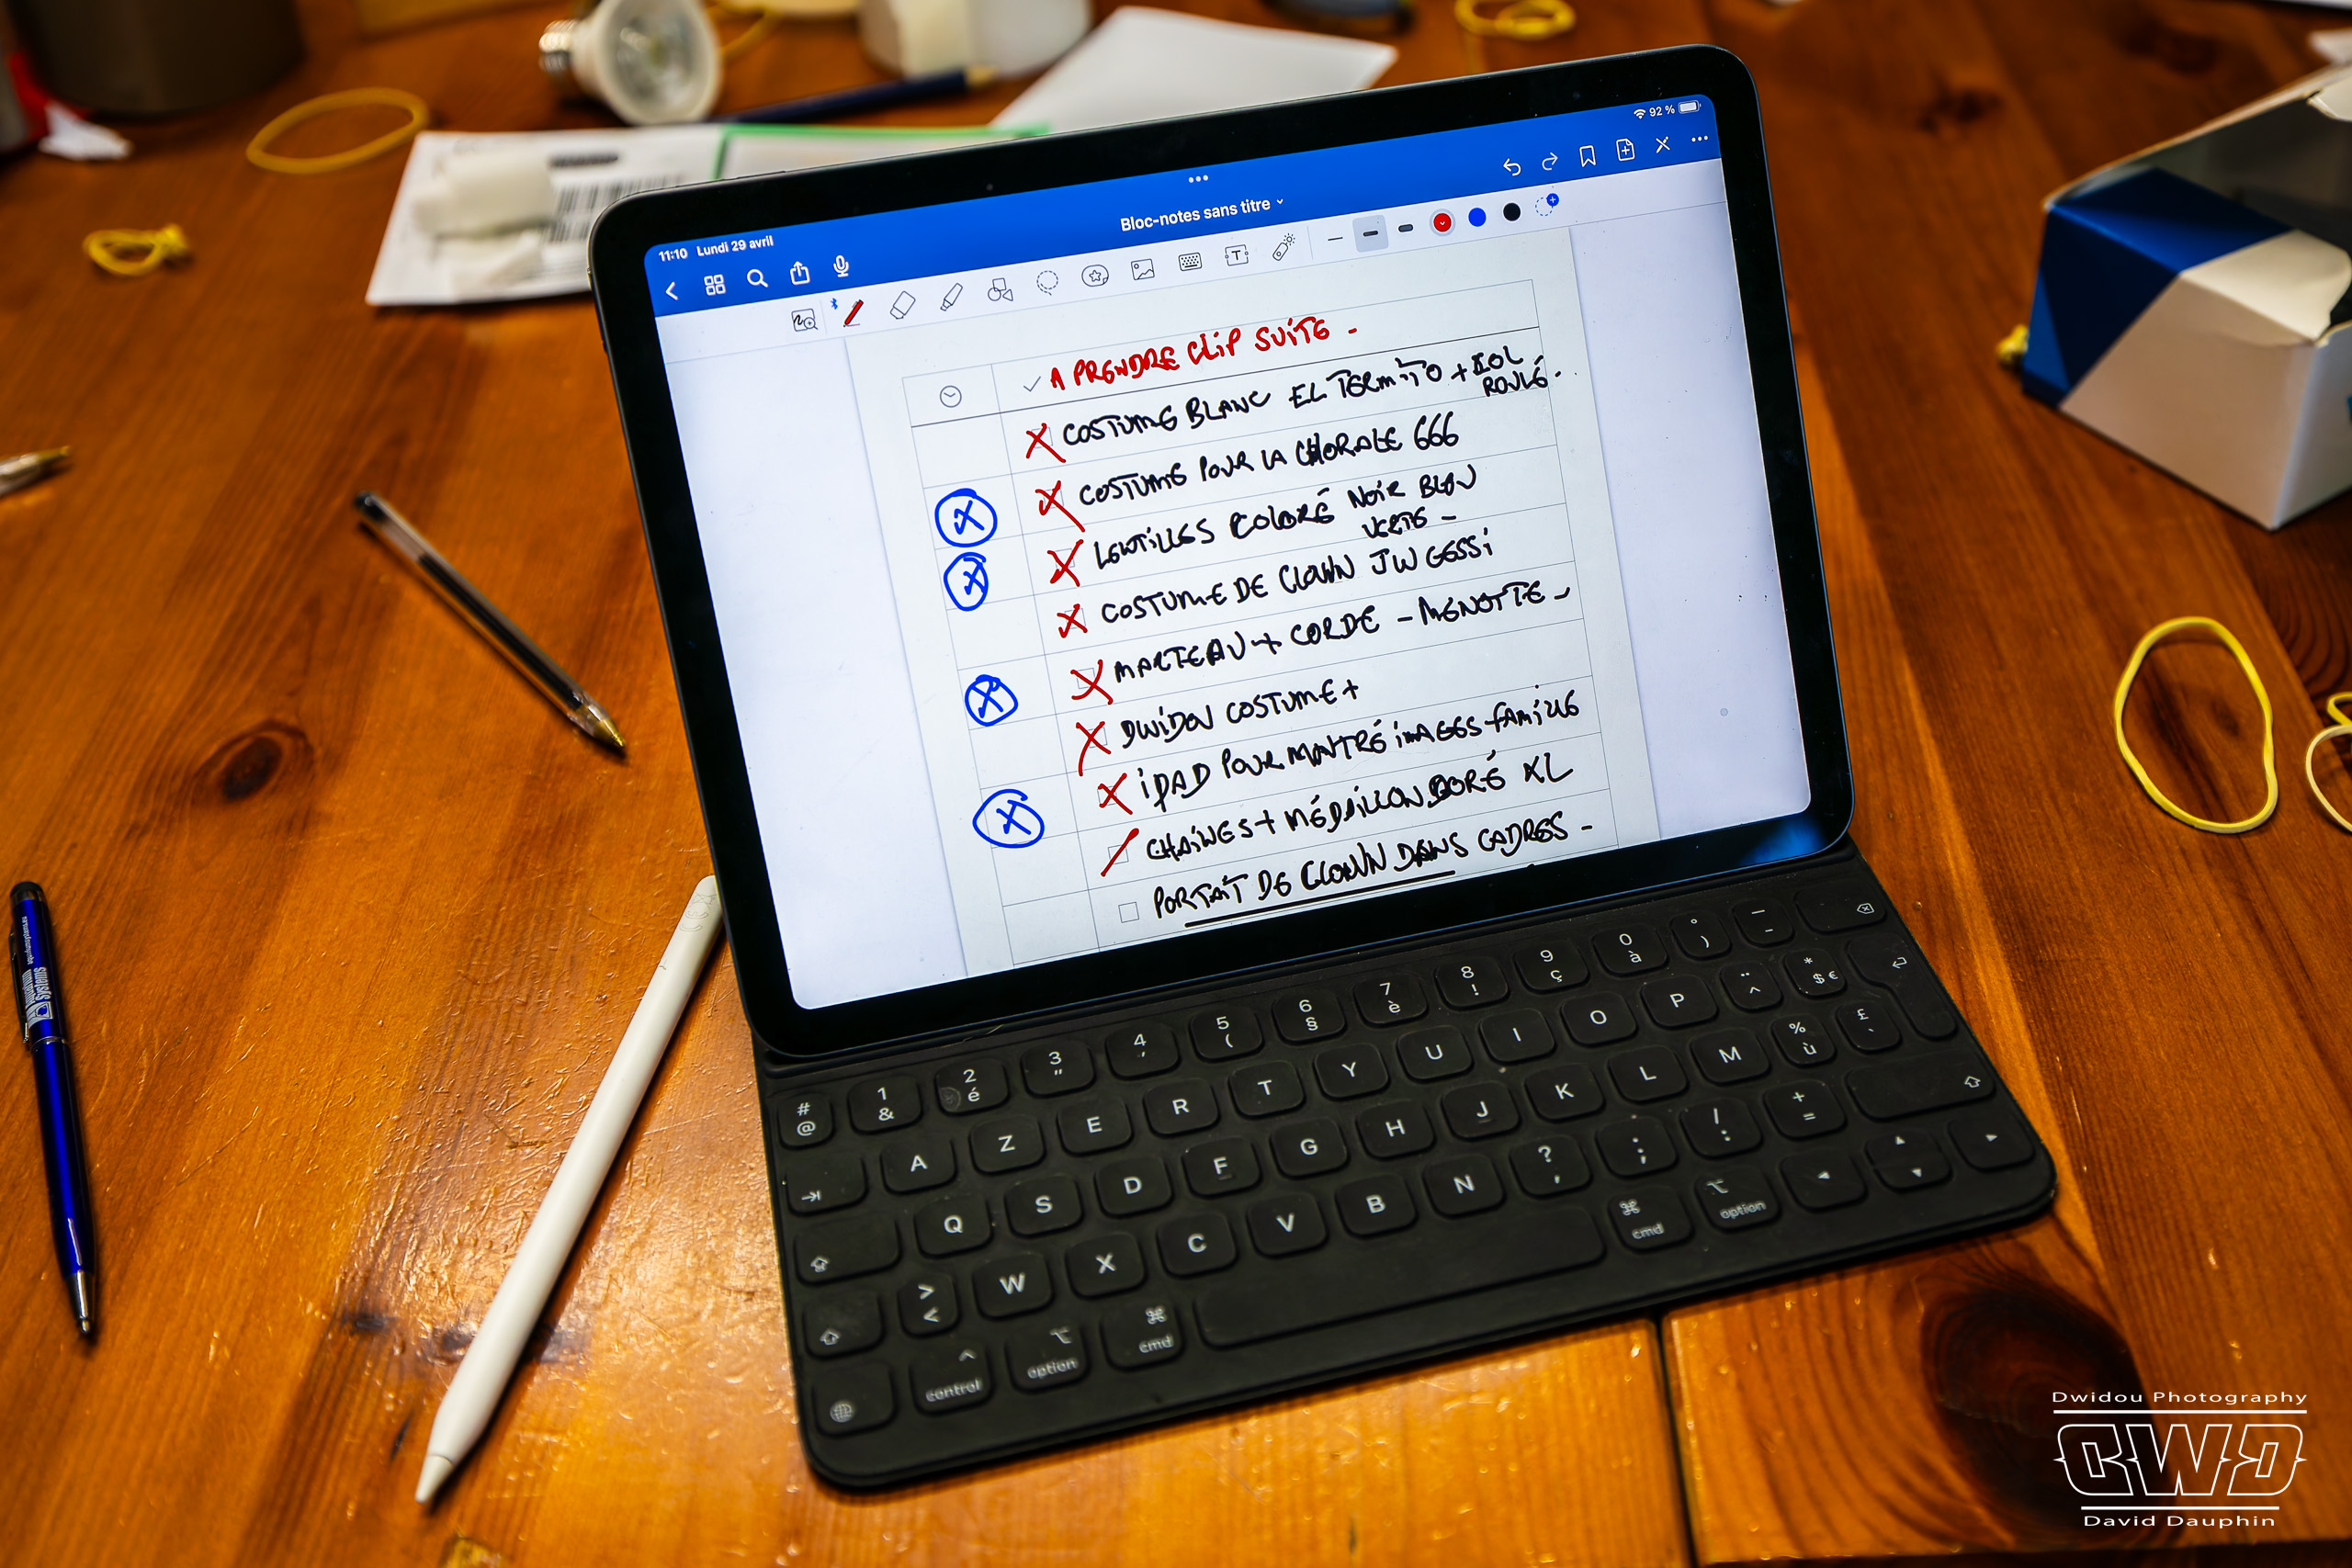 11:10 Lundi 29 avril
92 %
Bloc-notes sans titre
A PRENDRE CLIP SUITE -
COSTUME BLANC EL TERMITO + COL
ROULÉ.
COSTUME POUR LA CHORALE 666
LENTILLES COLORÉ NOIR BLEU
VERTE -
COSTUME DE CLOWN JW GESSI
MARTEAU + CORDE - MENOTTE -
DWIDOU COSTUME +
IPAD POUR MONTRÉ IMAGES FAMILLE
CHAINES + MÉDAILLON DORÉ XL
PORTAIT DE CLOWN DANS CADRES -
Systems
# 1 2 3 4 5 6 7 8 9 0 ° _
@ & é " ' ( § è ! ç à ) -
A Z E R T Y U I O P ¨ * €
^ $
Q S D F G H J K L M % £
ù `
> W X C V B N ? . / +
< , ; : =
control option cmd cmd option
Dwidou Photography
DWD
David Dauphin